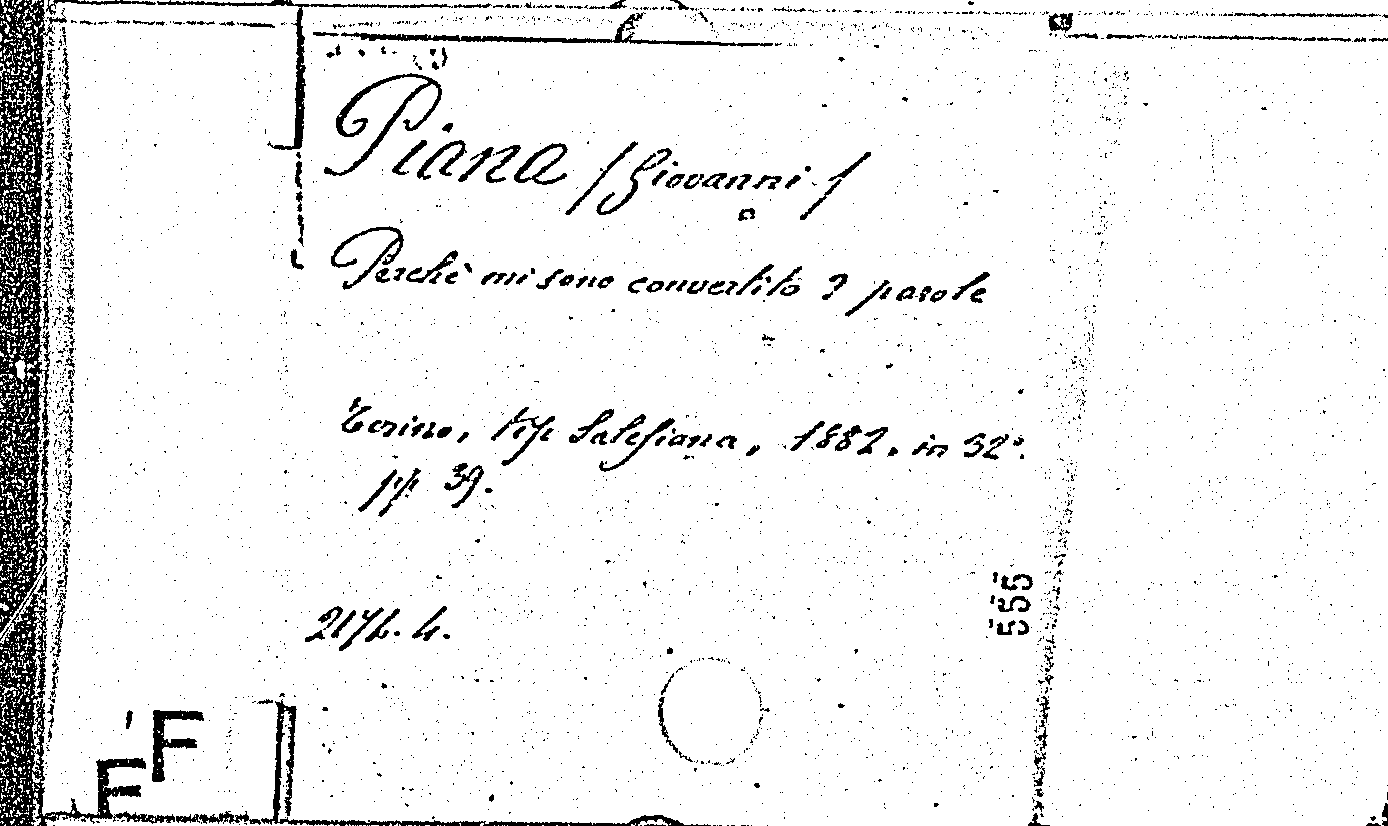 Piana /Giovanni/
Perchè mi sono convertito? parole
Torino, tip Salesiana, 1882, in 32°.
pp 39.
2174. 4.
555
F
F